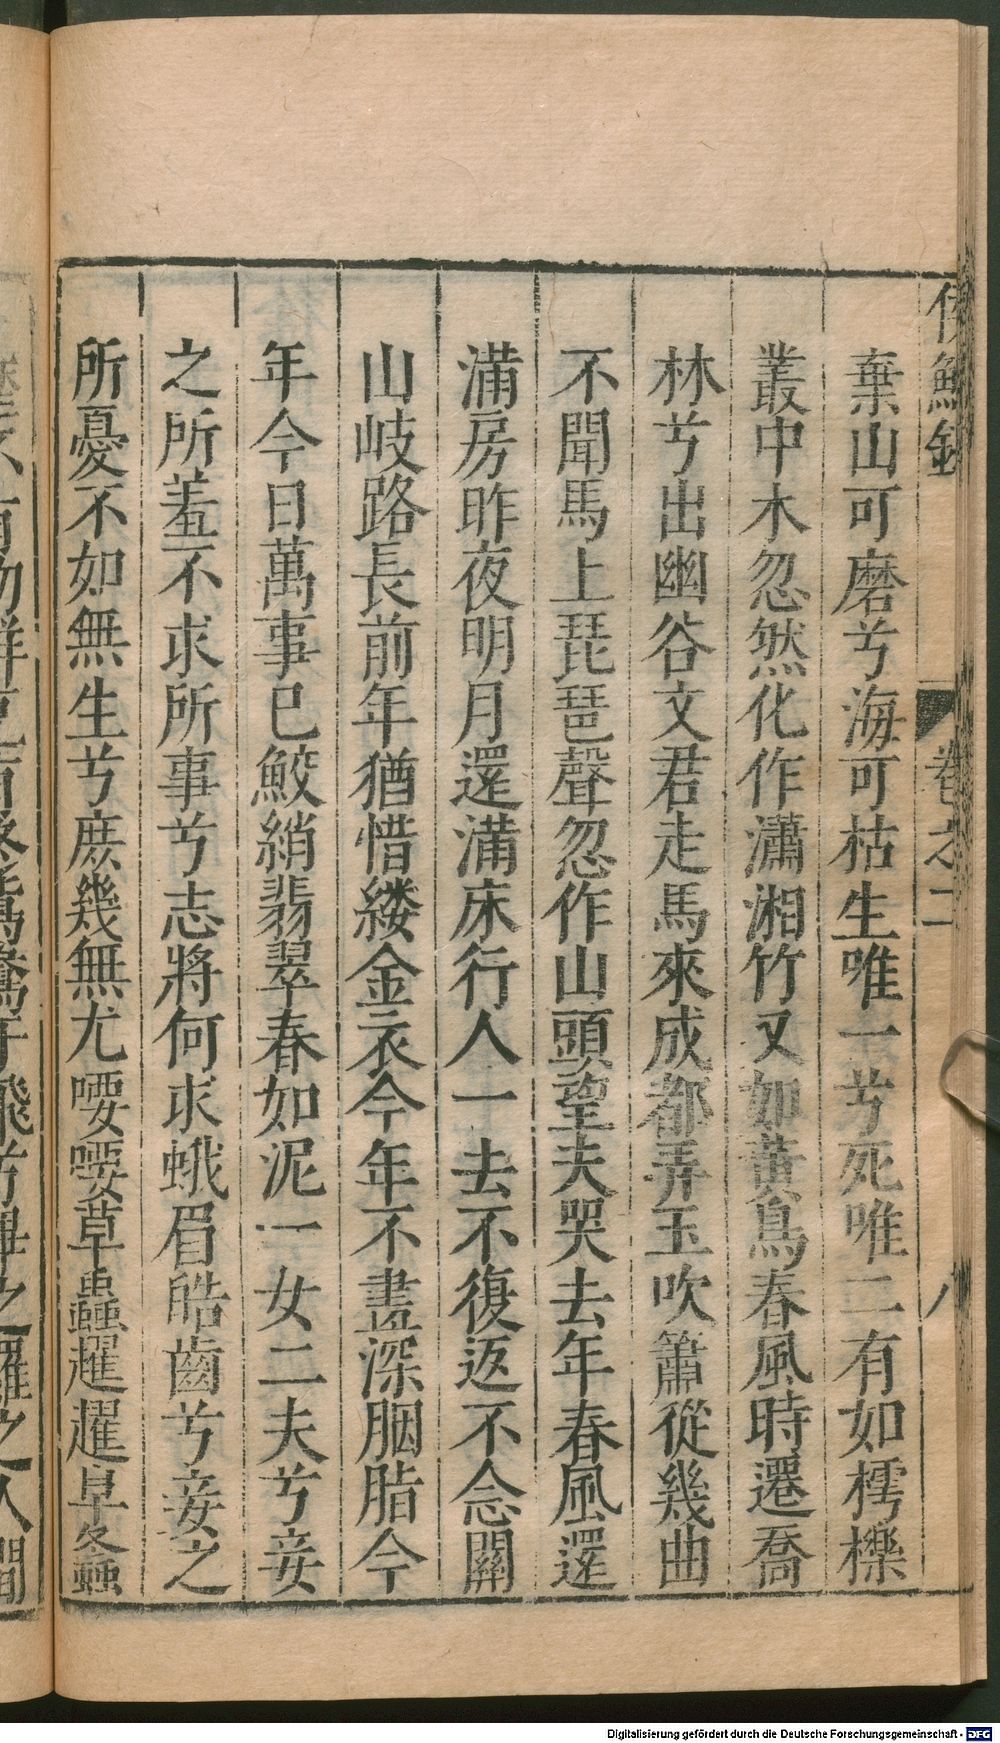 侯鯖錄 卷之二 八
棄山可磨兮海可枯生唯一兮死唯二有如樗櫟
叢中木忽然化作瀟湘竹又如黃鳥春風時遷喬
林兮出幽谷文君走馬來成都弄玉吹簫從幾曲
不聞馬上琵琶聲忽作山頭望夫哭去年春風還
滿房昨夜明月還滿床行人一去不復返不念關
山岐路長前年猶惜縷金衣今年不畫深胭脂今
年今日萬事已鮫綃翡翠春如泥一女二夫兮妾
之所羞不求所事兮志將何求蛾眉皓齒兮妾之
所憂不如無生兮庶幾無尤喓喓草蟲趯趯阜螽
Digitalisierung gefördert durch die Deutsche Forschungsgemeinschaft - DFG